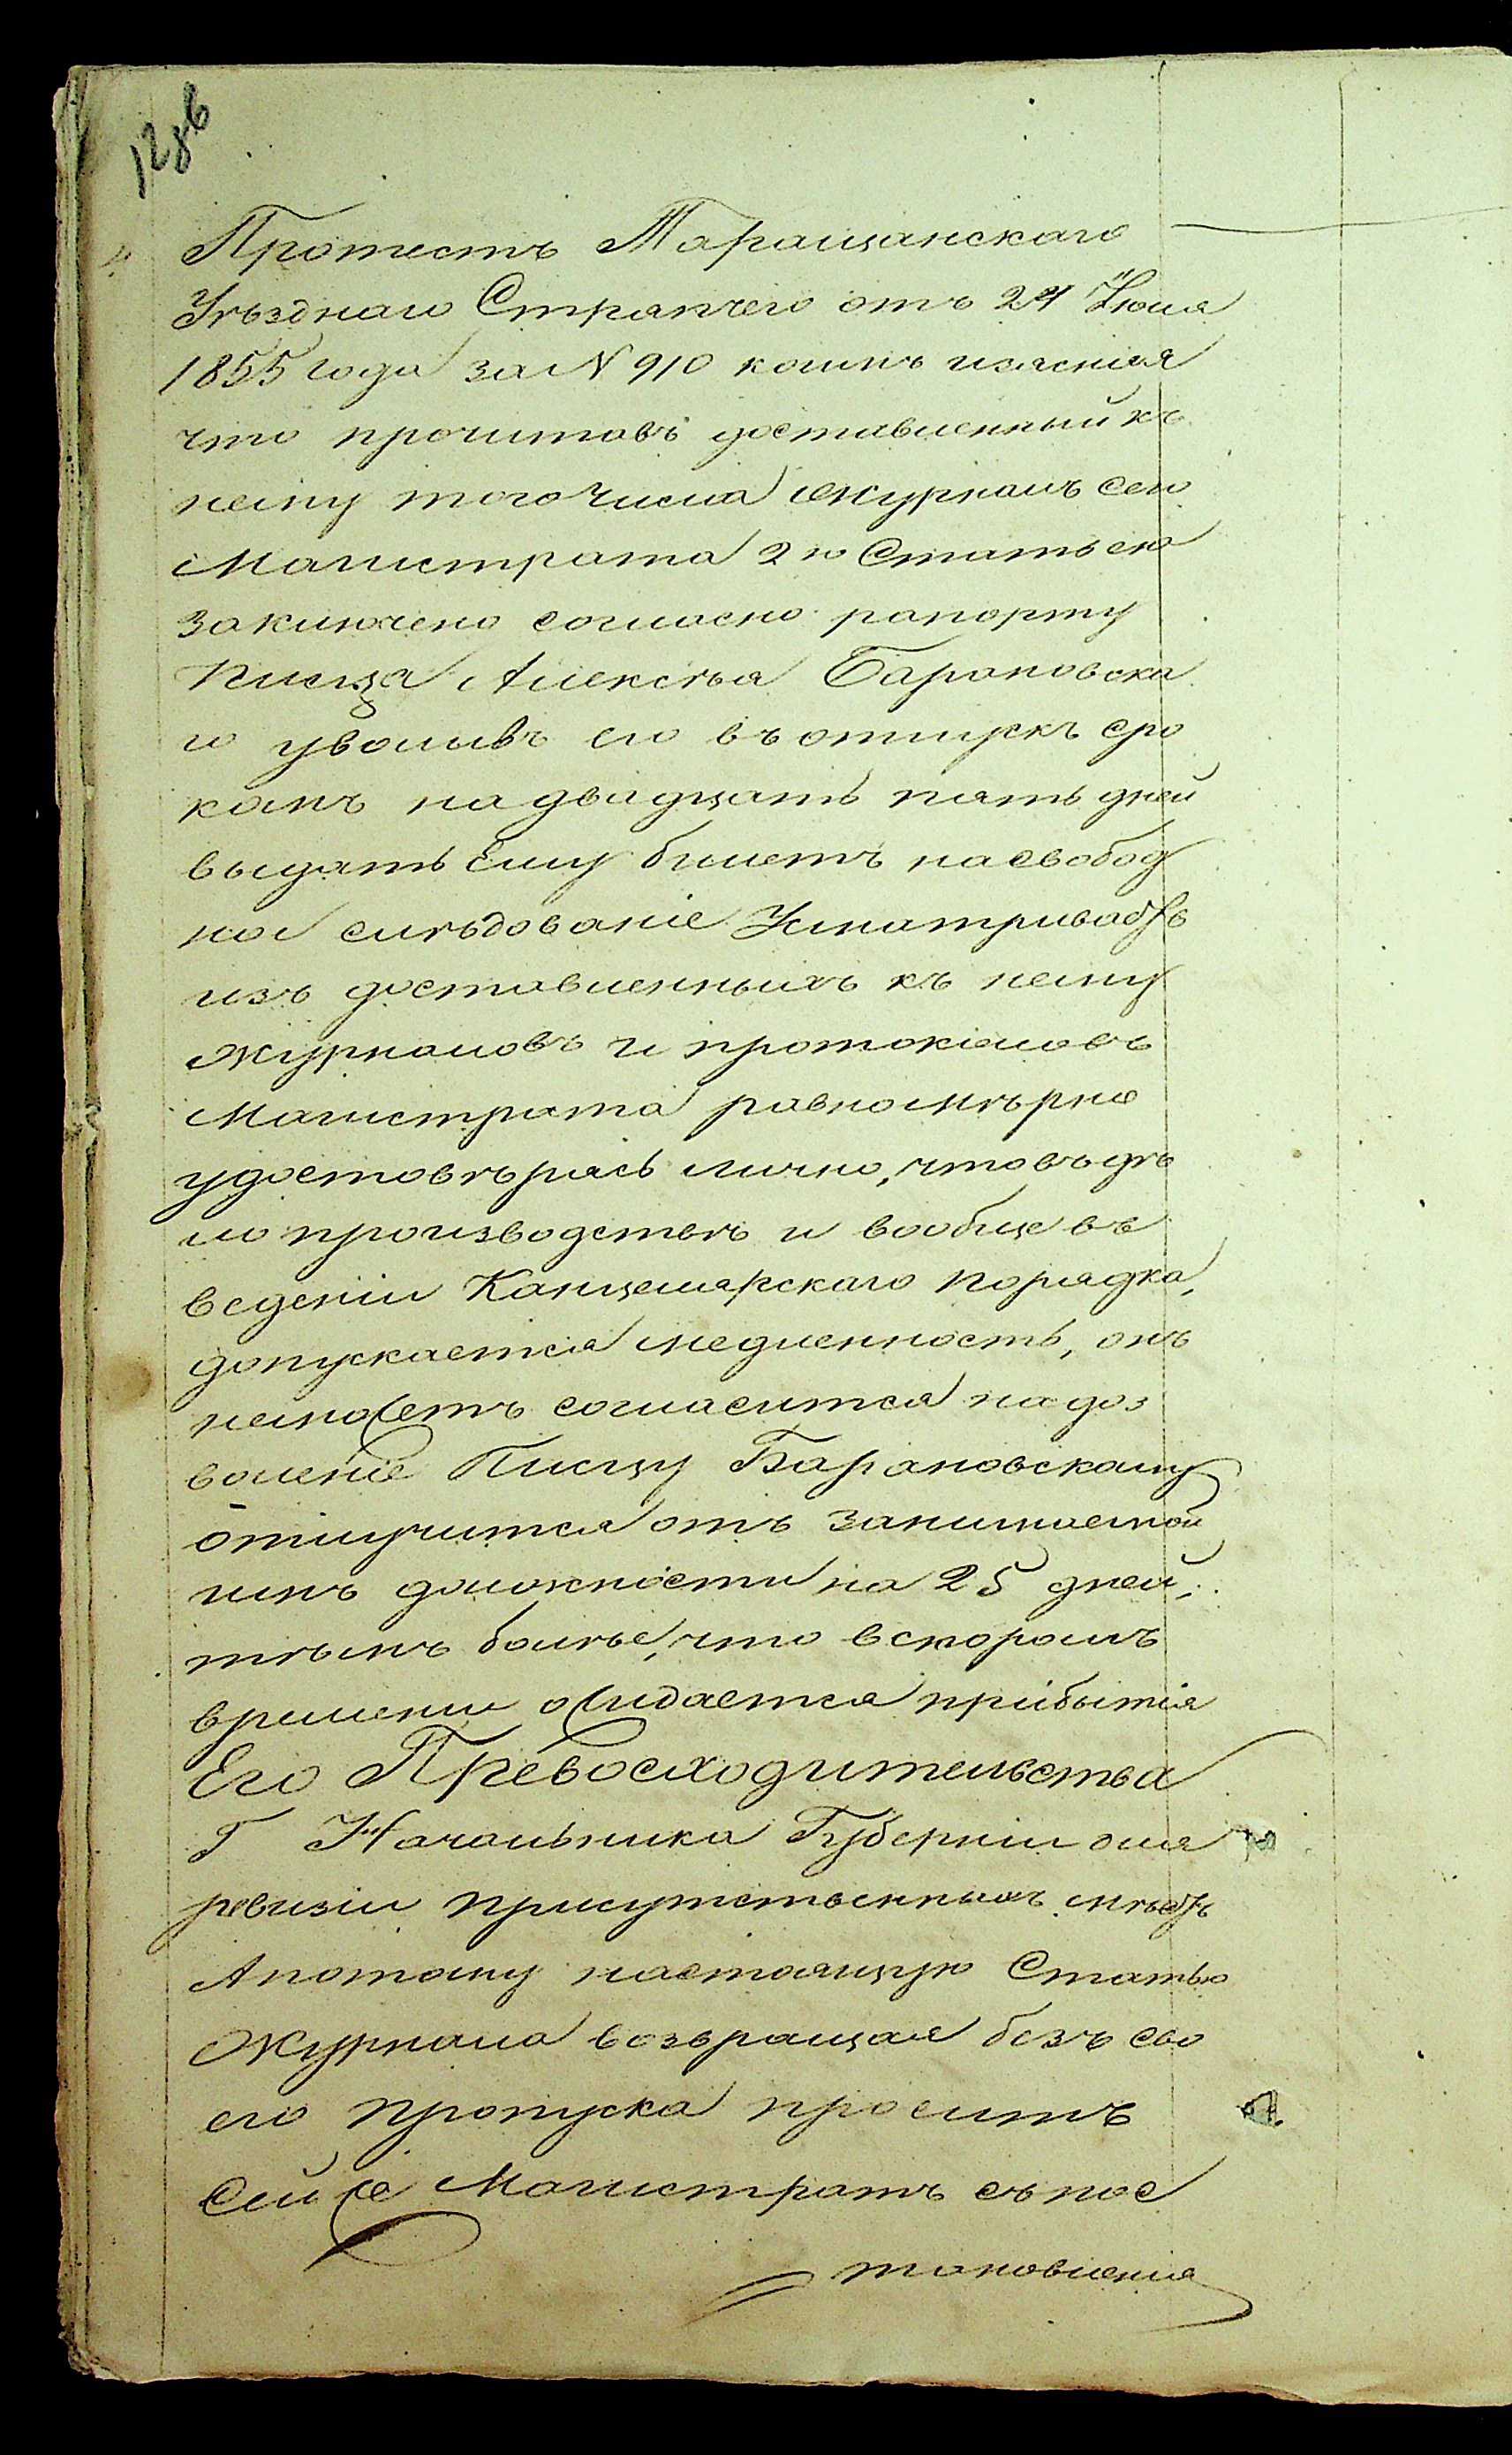 128б
Протестъ Таращанскаго
Уѣзднаго Стряпчего отъ 24 Июня
1855 года за N 910 коимъ изясняя
что прочитавъ доставленный къ
нему того Числа Журналъ сего
Магистрата 2ю Статьею
заключено согласно рапорту
Писца Алексѣя Барановска
го уволивъ его въ отпускъ сро
комъ на двадцать пять дней
выдать Ему билетъ на свобод
ное слѣдованіе Усматривая
изъ доставленныхъ къ нему
Журналовъ и протоколовъ
Магистрата равномѣрно
удостовѣрясь лично, что въ дѣ
ло производствѣ и вообще въ
веденіи Канцелярскаго порядка,
допускается медленность, онъ
неможетъ согласится на доз
воленіе Писцу Барановскому
отлучится отъ занимаемой
имъ должности на 25 дней,
тѣмъ болѣе, что вскоромъ
времени ожидается прибытія
Его Превосходительства
Г Начальника Губерніи для
ревизіи присутственныхъ мѣстъ
А потому настоящую Статью
Журнала возвращая безъ сво
его пропуска проситъ
Сей же Магистратъ съ пос
тановленія